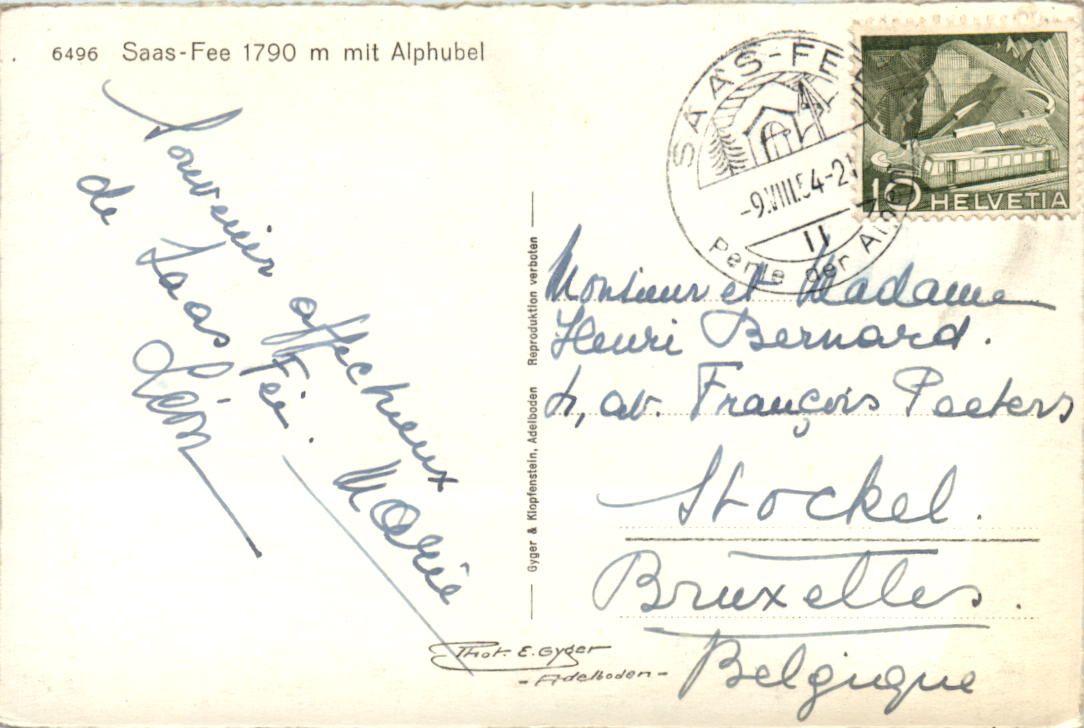 6496 Saas-Fee 1790 m mit Alphubel
Souvenir affectueux
de Saas Fée.
Marie
Léon
Gyger & Klopfenstein, Adelboden Reproduktion verboten
SAAS-FEE
-9.VIII.54-2
11
Perle der Alpen
10 HELVETIA
Monsieur et Madame
Henri Bernard.
av. François Peeters
Stockel.
Bruxelles.
Belgique
Phot. E. Gyger
- Adelboden -